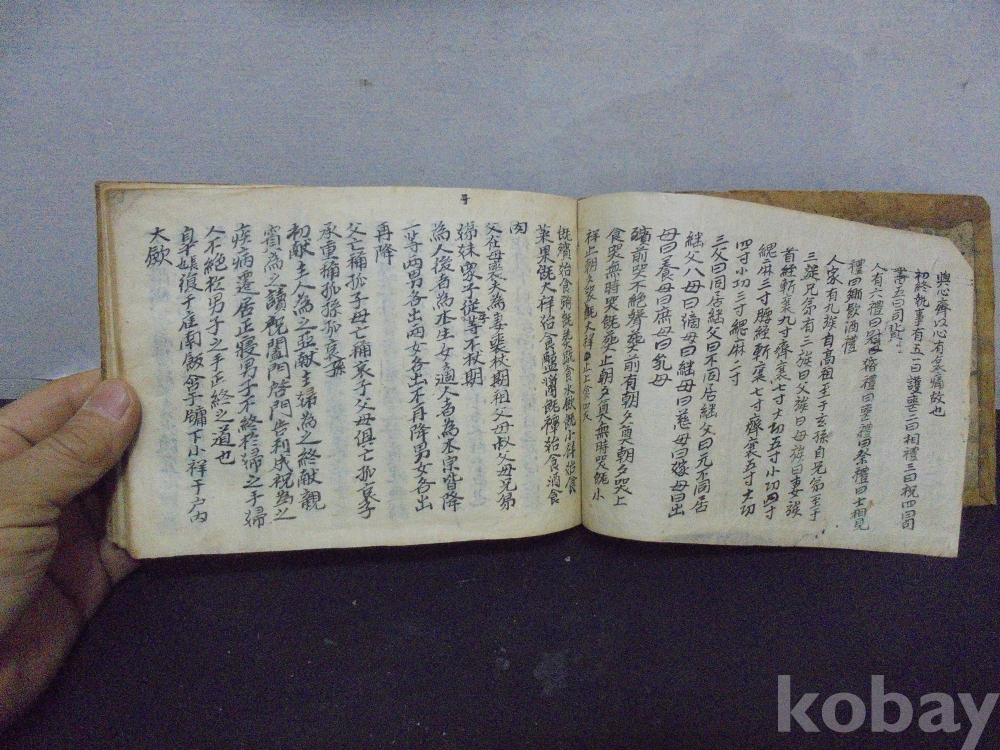 與心齊以心有哀慽故也
初終執事有五一曰護喪二曰相禮三曰祝四曰司
書五曰司貨
人有六禮曰冠禮曰婚禮曰喪禮曰祭禮曰士相見
禮曰鄕飮酒禮
人家有九族自高祖至于玄孫自兄弟至于
三從兄弟有三族曰父族曰母族曰妻族
首絰斬衰九寸齊衰七寸大功五寸小功四寸
緦麻三寸腰絰斬衰七寸齊衰五寸大功
四寸小功三寸緦麻二寸
三父曰同居繼父曰不同居繼父曰元不同居
繼父八母曰嫡母曰繼母曰慈母曰嫁母曰出
母曰養母曰庶母曰乳母
殯前哭不絶聲葬前有朝夕奠朝夕哭上
食哭無時哭旣葬止朝夕奠無時哭旣小
祥止朝夕哭旣大祥止上食哭
旣殯始食粥旣葬蔬食水飮旣小祥始食
菜果旣大祥始食醢醬旣禫始食酒食
肉
父在母喪夫爲妻喪杖期祖父母叔父母兄弟
娣妹衆子從子等不杖期
爲人後者爲本生女適人者爲本宗皆降
一等兩男各出兩女各出不再降男女各出
再降
父亡稱孤子母亡稱哀子父母俱亡孤哀子
承重稱孤孫孤哀孫
初献主人爲之亞献主婦爲之終献親
賓爲之讀祝闔門啓門告利成祝爲之
疾病遷居正寢男子不終於婦之手婦
人不絶於男子之手正終之道也
皐娠復于庭南飯牖下小祥于戶內
大歛
kobay